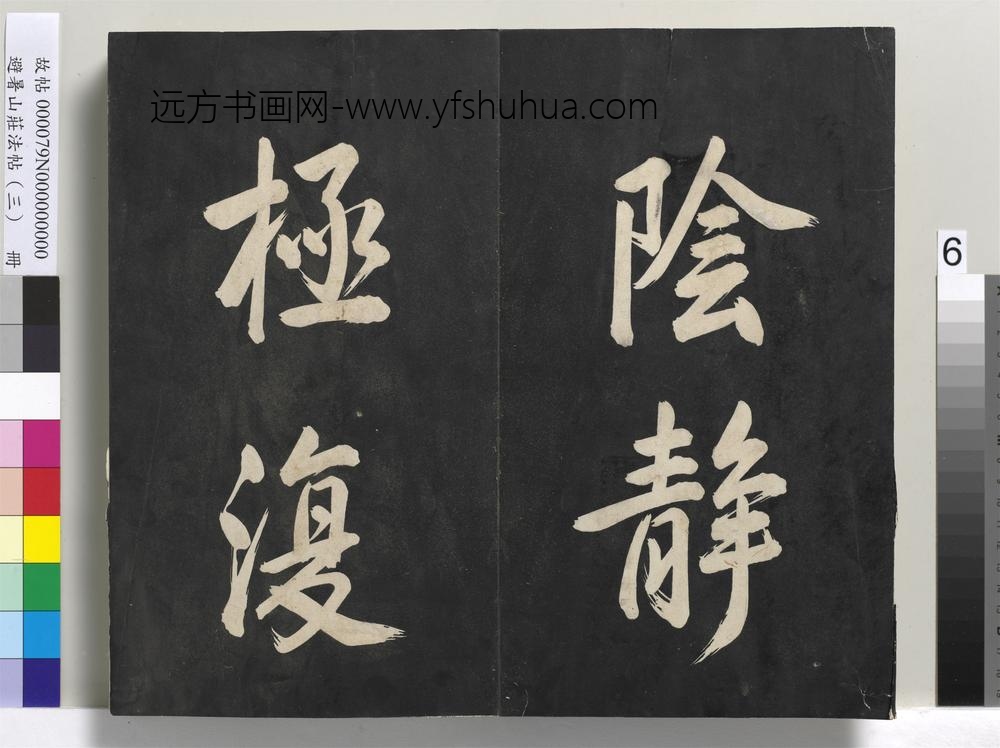 远方书画网-www.yfshuhua.com
陰静
極復
故帖 000079N000000000
避暑山莊法帖(三) 冊
6